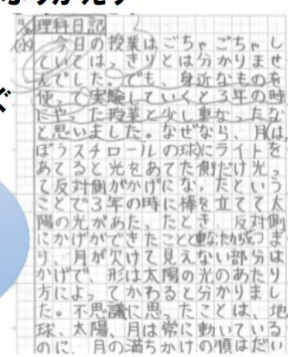 理科日記
今日の授業はごちゃごちゃし
ていては、きりとは分かりませ
んでした。でも、身近なものを
使って実験していくと3年の時
にやった授業と少し重なったな
と思いました。なぜなら、月は、
ぼうスチロールの球にライトを
あてると光をあてた側だけ光っ
て反対側がかげになったという
ことで3年の時に棒を立てて太
陽の光があたったとき、反対側
にかげができたことと重なったから。つま
り、月が欠けて見えない部分は
かげで、形は太陽の光のあたり
方によってかわると分かりまし
た。不思議に思ったことは、地
球、太陽、月は常に動いている
のに、月の満ちかけの順はだい